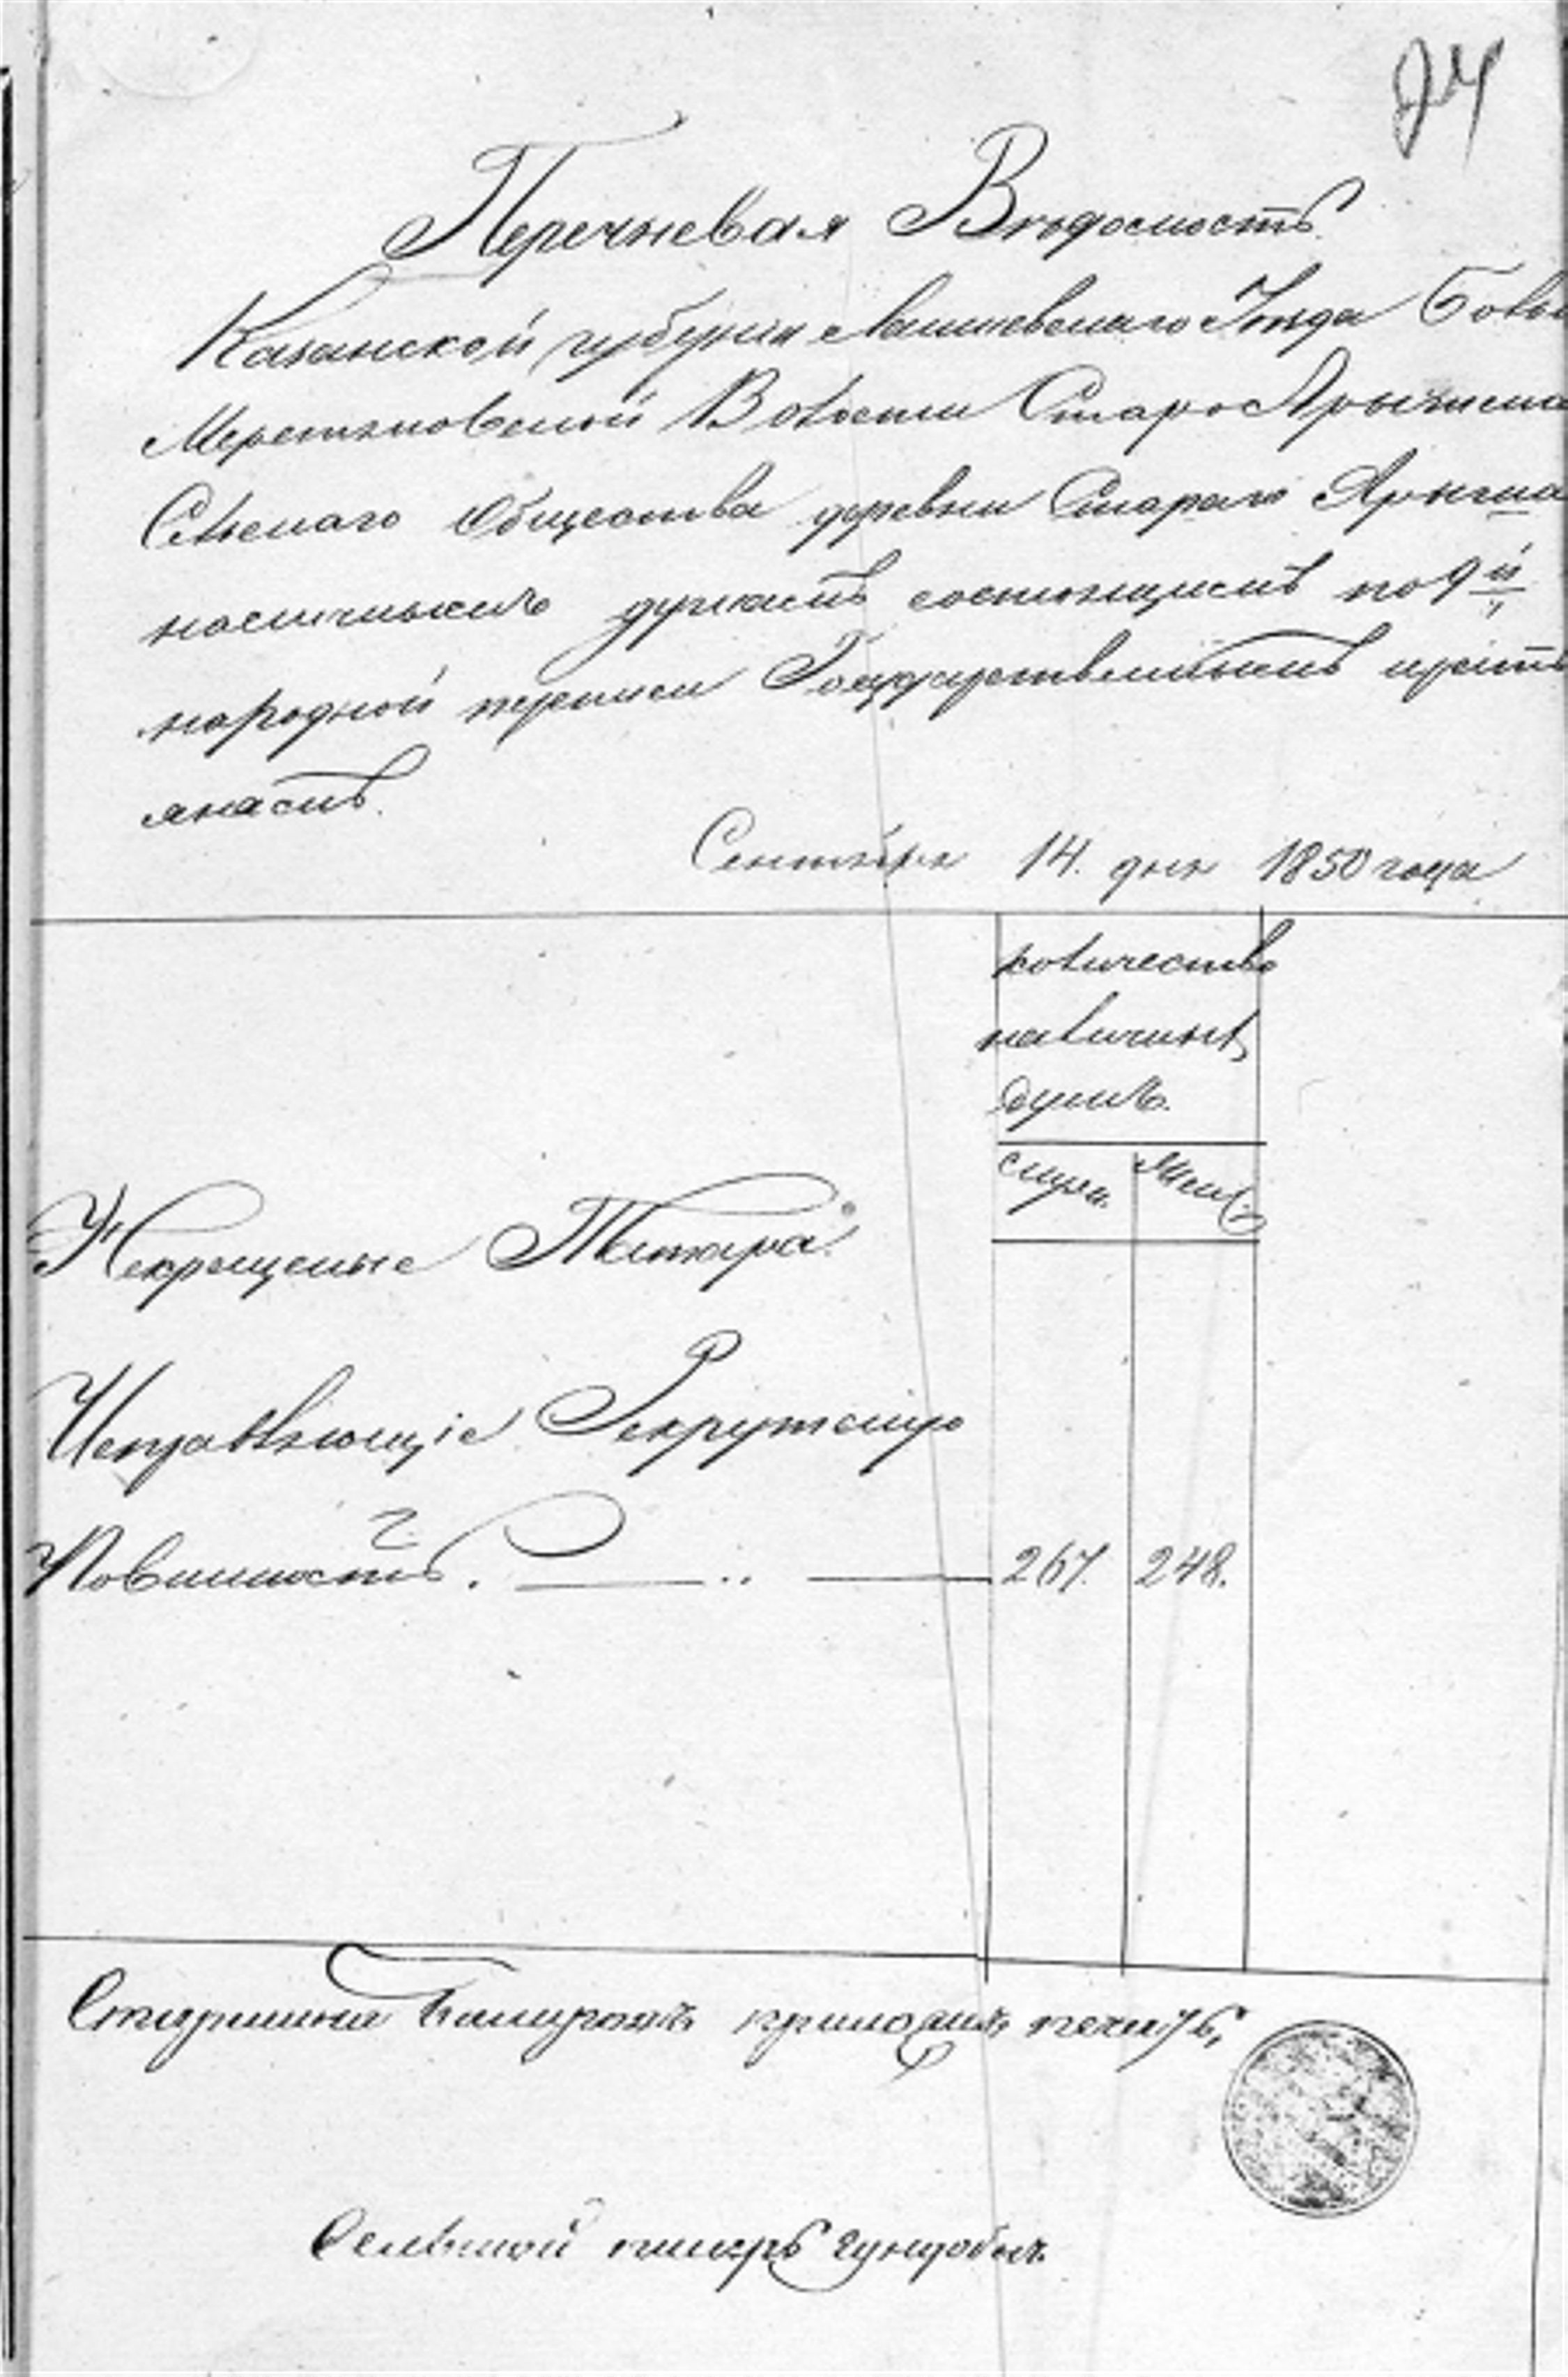 24
Перечневая Вѣдомость
Казанской губерніи Лаишевскаго Уѣзда
Волости Старо
Сельскаго Общества деревни Стараго
душамъ состоящимъ по 9й
народной переписи Государственнымъ кресть
янамъ.
Сентября 14. дня 1850 года
количество
наличных
душъ.
муж. жен.
Некрещеные Татара
Исправляющіе Рекрутскую
Повинность. 267. 248.
Старшина приложилъ печать
Сельской писарь